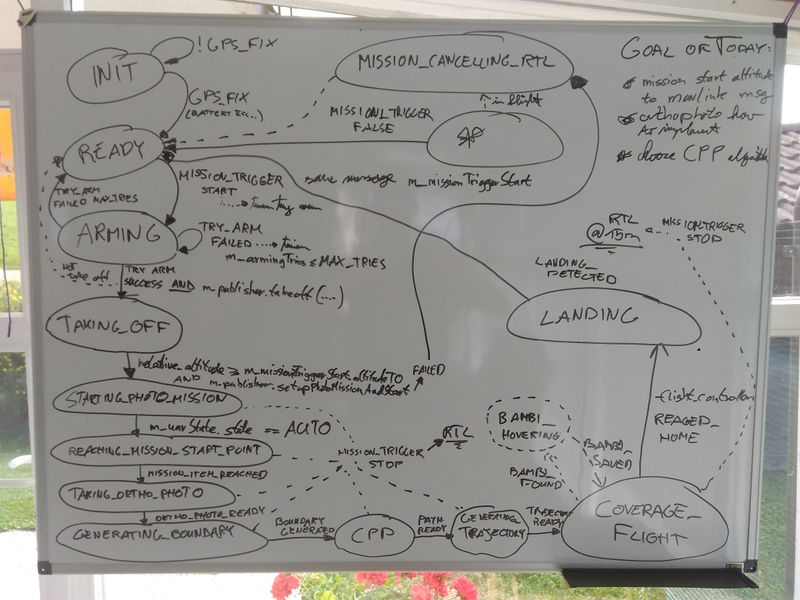 INIT
!GPS_FIX
GPS_FIX
(BATTERY ECC..)
MISSION_CANCELLING_RTL
in flight
GOAL OF TODAY:
mission start altitude
to mavlink msg
orthophoto how
to implement
choose CPP algorithm
READY
MISSION_TRIGGER
FALSE
MISSION_TRIGGER
START
save message m_missionTriggerStart
TRY_ARM
FAILED MAX_TRIES
ARMING
TRY_ARM
FAILED
m_armingTries ≤ MAX_TRIES
NOT
take off
TRY ARM
SUCCESS AND m_publisher.takeoff(...)
RTL
@15m
MISSION_TRIGGER
STOP
LANDING_
DETECTED
LANDING
TAKING_OFF
relative_altitude ≥ m_missionTriggerStart.altitudeTO
AND m_publisher.setupPhotoMissionAndStart
FAILED
STARTING_PHOTO_MISSION
m_uavState.state == AUTO
REACHING_MISSION_START_POINT
MISSION_ITEM_REACHED
TAKING_ORTHO_PHOTO
ORTHO_PHOTO_READY
GENERATING_BOUNDARY
MISSION_TRIGGER
STOP
RTL
BOUNDARY
GENERATED
CPP
PATH
READY
GENERATING_
TRAJECTORY
TRAJECTORY
READY
BAMBI_
HOVERING
BAMBI_
FOUND
BAMBI_
SAVED
flight_controller
REACHED_
HOME
COVERAGE_
FLIGHT